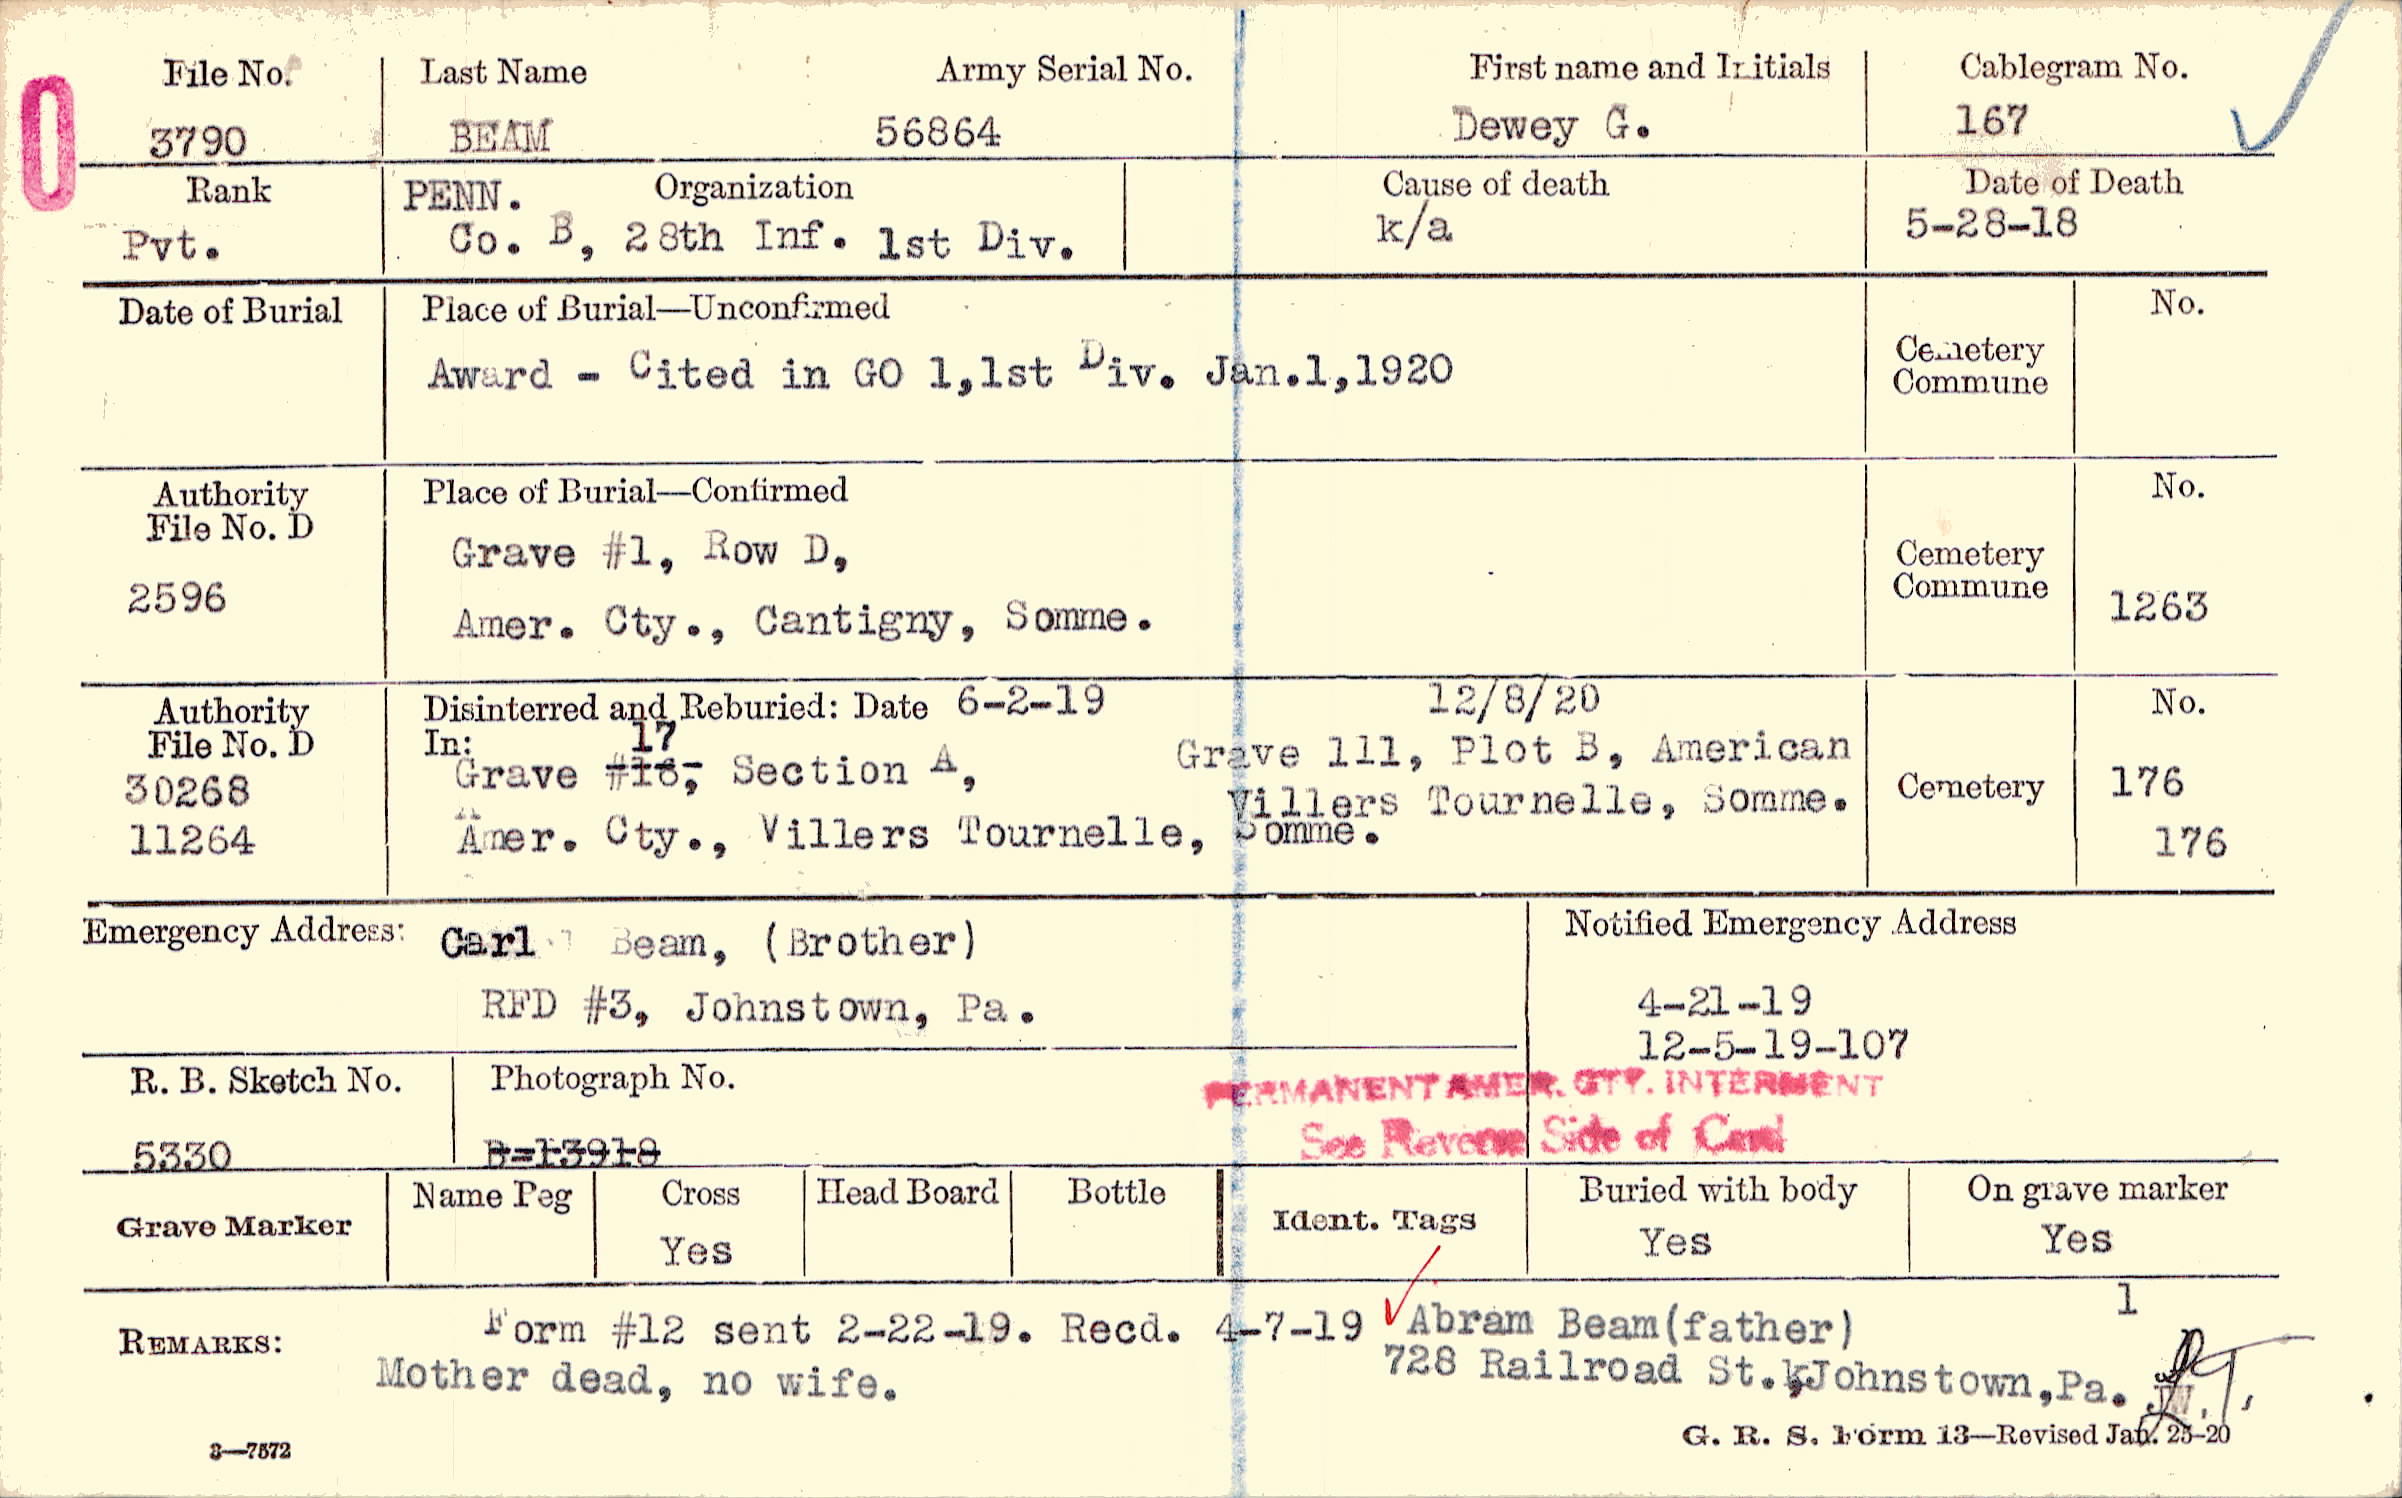 File No. Last Name Army Serial No. First name and Initials Cablegram No.
3790 BEAM 56864 Dewey G. 167
Rank PENN. Organization Cause of death Date of Death
Pvt. Co. B, 28th Inf. 1st Div. k/a 5-28-18
Date of Burial Place of Burial—Unconfirmed No.
Award - Cited in GO 1,1st Div. Jan.1,1920
Cemetery
Commune
Authority Place of Burial—Confirmed No.
File No. D
Grave #1, Row D,
Cemetery
Commune
2596 1263
Amer. Cty., Cantigny, Somme.
Authority Disinterred and Reburied: Date 6-2-19 12/8/20 No.
File No. D In: 17
Grave #16, Section A, Grave 111, Plot B, American
30268 Villers Tournelle, Somme. Cemetery 176
11264 Amer. Cty., Villers Tournelle, Somme. 176
Emergency Address: Carl Beam, (Brother) Notified Emergency Address
RFD #3, Johnstown, Pa. 4-21-19
12-5-19-107
R. B. Sketch No. Photograph No. PERMANENT AMER. CTY. INTERMENT
See Reverse Side of Card
5330 B-13918
Grave Marker Name Peg Cross Head Board Bottle Ident. Tags Buried with body On grave marker
Yes Yes Yes
1
REMARKS: Form #12 sent 2-22-19. Recd. 4-7-19 Abram Beam(father)
Mother dead, no wife. 728 Railroad St., Johnstown,Pa.
3—7572 G. R. S. Form 13—Revised Jan. 25-20